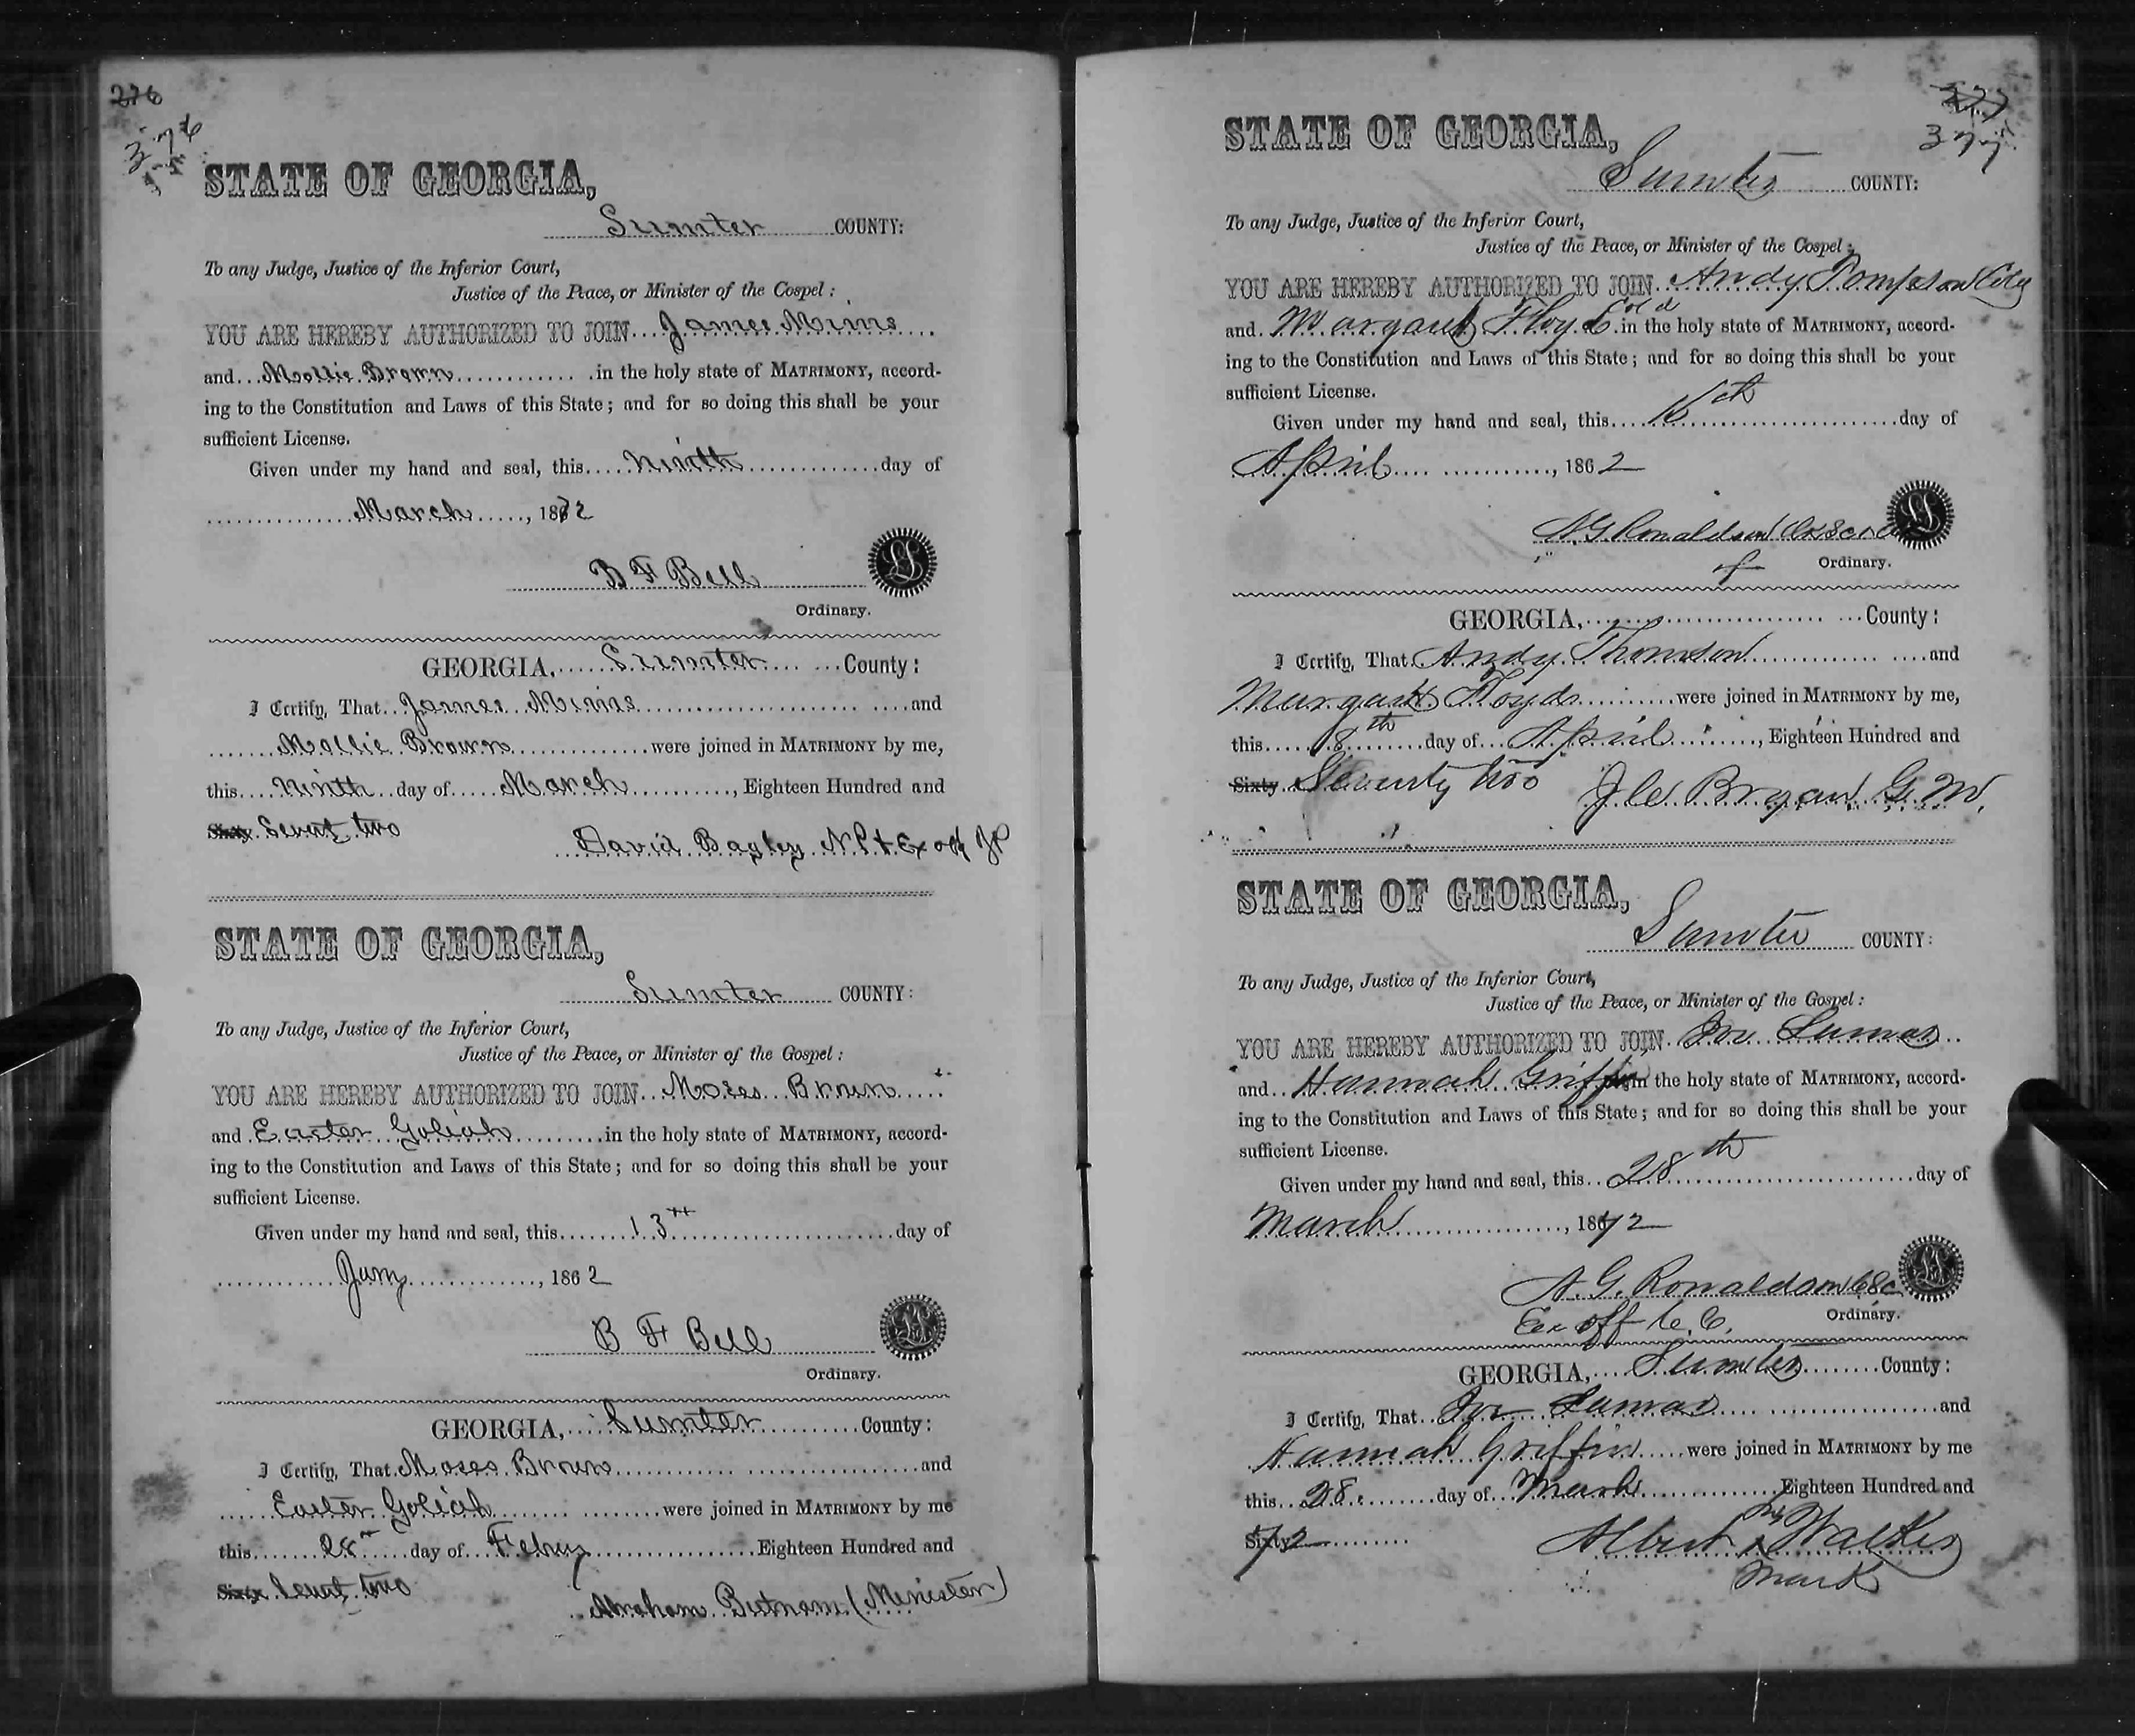 276
376
STATE OF GEORGIA,
Sumter COUNTY:
To any Judge, Justice of the Inferior Court,
Justice of the Peace, or Minister of the Gospel:
YOU ARE HEREBY AUTHORIZED TO JOIN James Mims
and Mollie Brown in the holy state of MATRIMONY, accord-
ing to the Constitution and Laws of this State; and for so doing this shall be your
sufficient License.
Given under my hand and seal, this Ninth day of
March, 1872
B F Bell
Ordinary.
GEORGIA, Sumter County:
I Certify, That James Mims and
Mollie Brown were joined in MATRIMONY by me,
this Ninth day of March, Eighteen Hundred and
Sixty Sevnt two
David Bagley NP & Ex off JP
STATE OF GEORGIA,
Sumter COUNTY:
To any Judge, Justice of the Inferior Court,
Justice of the Peace, or Minister of the Gospel:
YOU ARE HEREBY AUTHORIZED TO JOIN Moses Brown
and Easter Goliah in the holy state of MATRIMONY, accord-
ing to the Constitution and Laws of this State; and for so doing this shall be your
sufficient License.
Given under my hand and seal, this 13th day of
Jany, 1862
B F Bell
Ordinary.
GEORGIA, Sumter County:
I Certify, That Moses Brown and
Easter Goliah were joined in MATRIMONY by me
this 28th day of Febuy Eighteen Hundred and
Sixty Sevnt two
Abraham Butnam (Minister)
377
STATE OF GEORGIA,
Sumter COUNTY:
To any Judge, Justice of the Inferior Court,
Justice of the Peace, or Minister of the Gospel;
YOU ARE HEREBY AUTHORIZED TO JOIN Andy Tompson
and Margaret Floyd Cold in the holy state of MATRIMONY, accord-
ing to the Constitution and Laws of this State; and for so doing this shall be your
sufficient License.
Given under my hand and seal, this day of
April, 1862
A G Ronaldson
Ordinary.
GEORGIA, County:
I Certify, That Andy Thomson and
Margaret Floyd were joined in MATRIMONY by me,
this 18th day of April, Eighteen Hundred and
Sixty Seventy two
J C Bryan G. M.
STATE OF GEORGIA,
Sumter COUNTY:
To any Judge, Justice of the Inferior Court,
Justice of the Peace, or Minister of the Gospel:
YOU ARE HEREBY AUTHORIZED TO JOIN Joe Lumar
and Hannah Griffin in the holy state of MATRIMONY, accord-
ing to the Constitution and Laws of this State; and for so doing this shall be your
sufficient License.
Given under my hand and seal, this 28th day of
March, 1872
A. G. Ronaldson CSC
Ex off C. C.
Ordinary.
GEORGIA, Sumter County:
I Certify, That Joe Lumar and
Hannah Griffin were joined in MATRIMONY by me
this 28 day of March Eighteen Hundred and
Sixty 72
his
Albert x Walker
mark